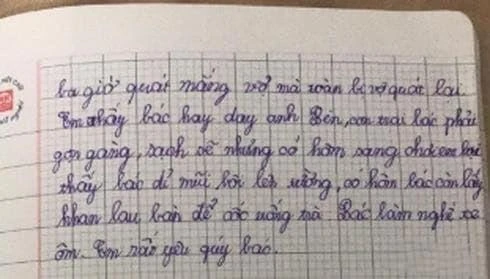 ba giờ quát mắng vợ mà toàn bị vợ quát lại.
Em thấy bác hay dạy anh Bên, con trai bác phải
gọn gàng, sạch sẽ nhưng có hôm sang chơi em lại
thấy bác dí mũi hôi lên tường, có hôm bác còn lấy
khan lau bàn để cốc uống trà. Bác làm nghề xe
ôm. Em rất yêu quý bác.